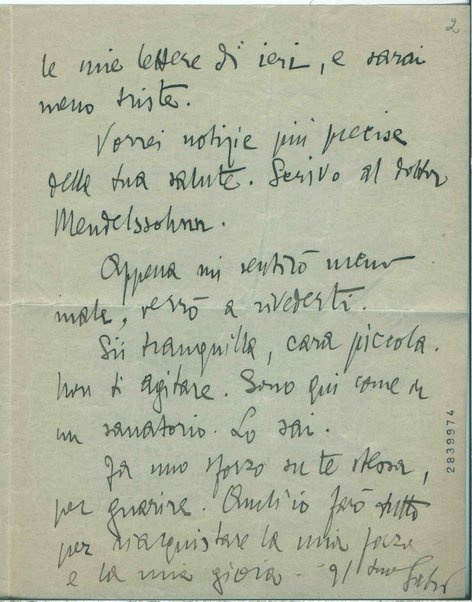 2
le mie lettere di ieri, e sarai
meno triste.
Vorrei notizie più precise
della tua salute. Scrivo al dottor
Mendelssohn.
Appena mi sentirò meno
male, verrò a rivederti.
Sii tranquilla, cara piccola.
Non ti agitare. Sono qui come in
un sanatorio. Lo sai.
Fa uno sforzo su te stessa,
per guarire. Anch'io farò tutto
per riacquistare la mia forza
e la mia gioia -
2839974